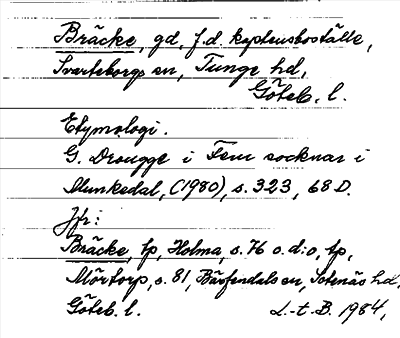 Bräcke, gd, f.d. kaptensboställe,
Svarteborgs sn, Tunge hd,
Göteb. l.
Etymologi.
G. Drougge i Fem socknar i
Munkedal, (1980), s. 323, 68 D.
Jfr:
Bräcke, tp, Holma, s. 76 o. d:o, tp,
Mörtorp, s. 81, Bärfendals sn, Sotenäs hd,
Göteb. l. L.-t. B. 1984,